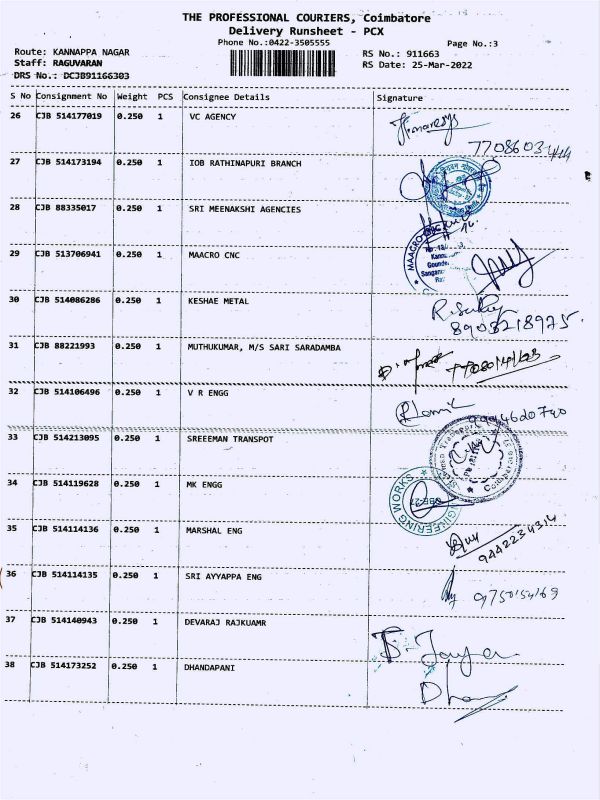 THE PROFESSIONAL COURIERS, Coimbatore
Delivery Runsheet - PCX
Phone No.:0422-3505555
Page No.:3
Route: KANNAPPA NAGAR
RS No.: 911663
Staff: RAGUVARAN
RS Date: 25-Mar-2022
DRS No.: DCJB91166303
S No Consignment No Weight PCS Consignee Details Signature
26 CJB 514177019 0.250 1 VC AGENCY
27 CJB 514173194 0.250 1 IOB RATHINAPURI BRANCH
28 CJB 88335017 0.250 1 SRI MEENAKSHI AGENCIES
29 CJB 513706941 0.250 1 MAACRO CNC
MAACRO
30 CJB 514086286 0.250 1 KESHAE METAL
8903218975.
31 CJB 88221993 0.250 1 MUTHUKUMAR, M/S SARI SARADAMBA
32 CJB 514106496 0.250 1 V R ENGG
33 CJB 514213095 0.250 1 SREEEMAN TRANSPOT
34 CJB 514119628 0.250 1 MK ENGG
ENGINEERING WORKS
35 CJB 514114136 0.250 1 MARSHAL ENG
9442234314
36 CJB 514114135 0.250 1 SRI AYYAPPA ENG
37 CJB 514140943 0.250 1 DEVARAJ RAJKUAMR
38 CJB 514173252 0.250 1 DHANDAPANI